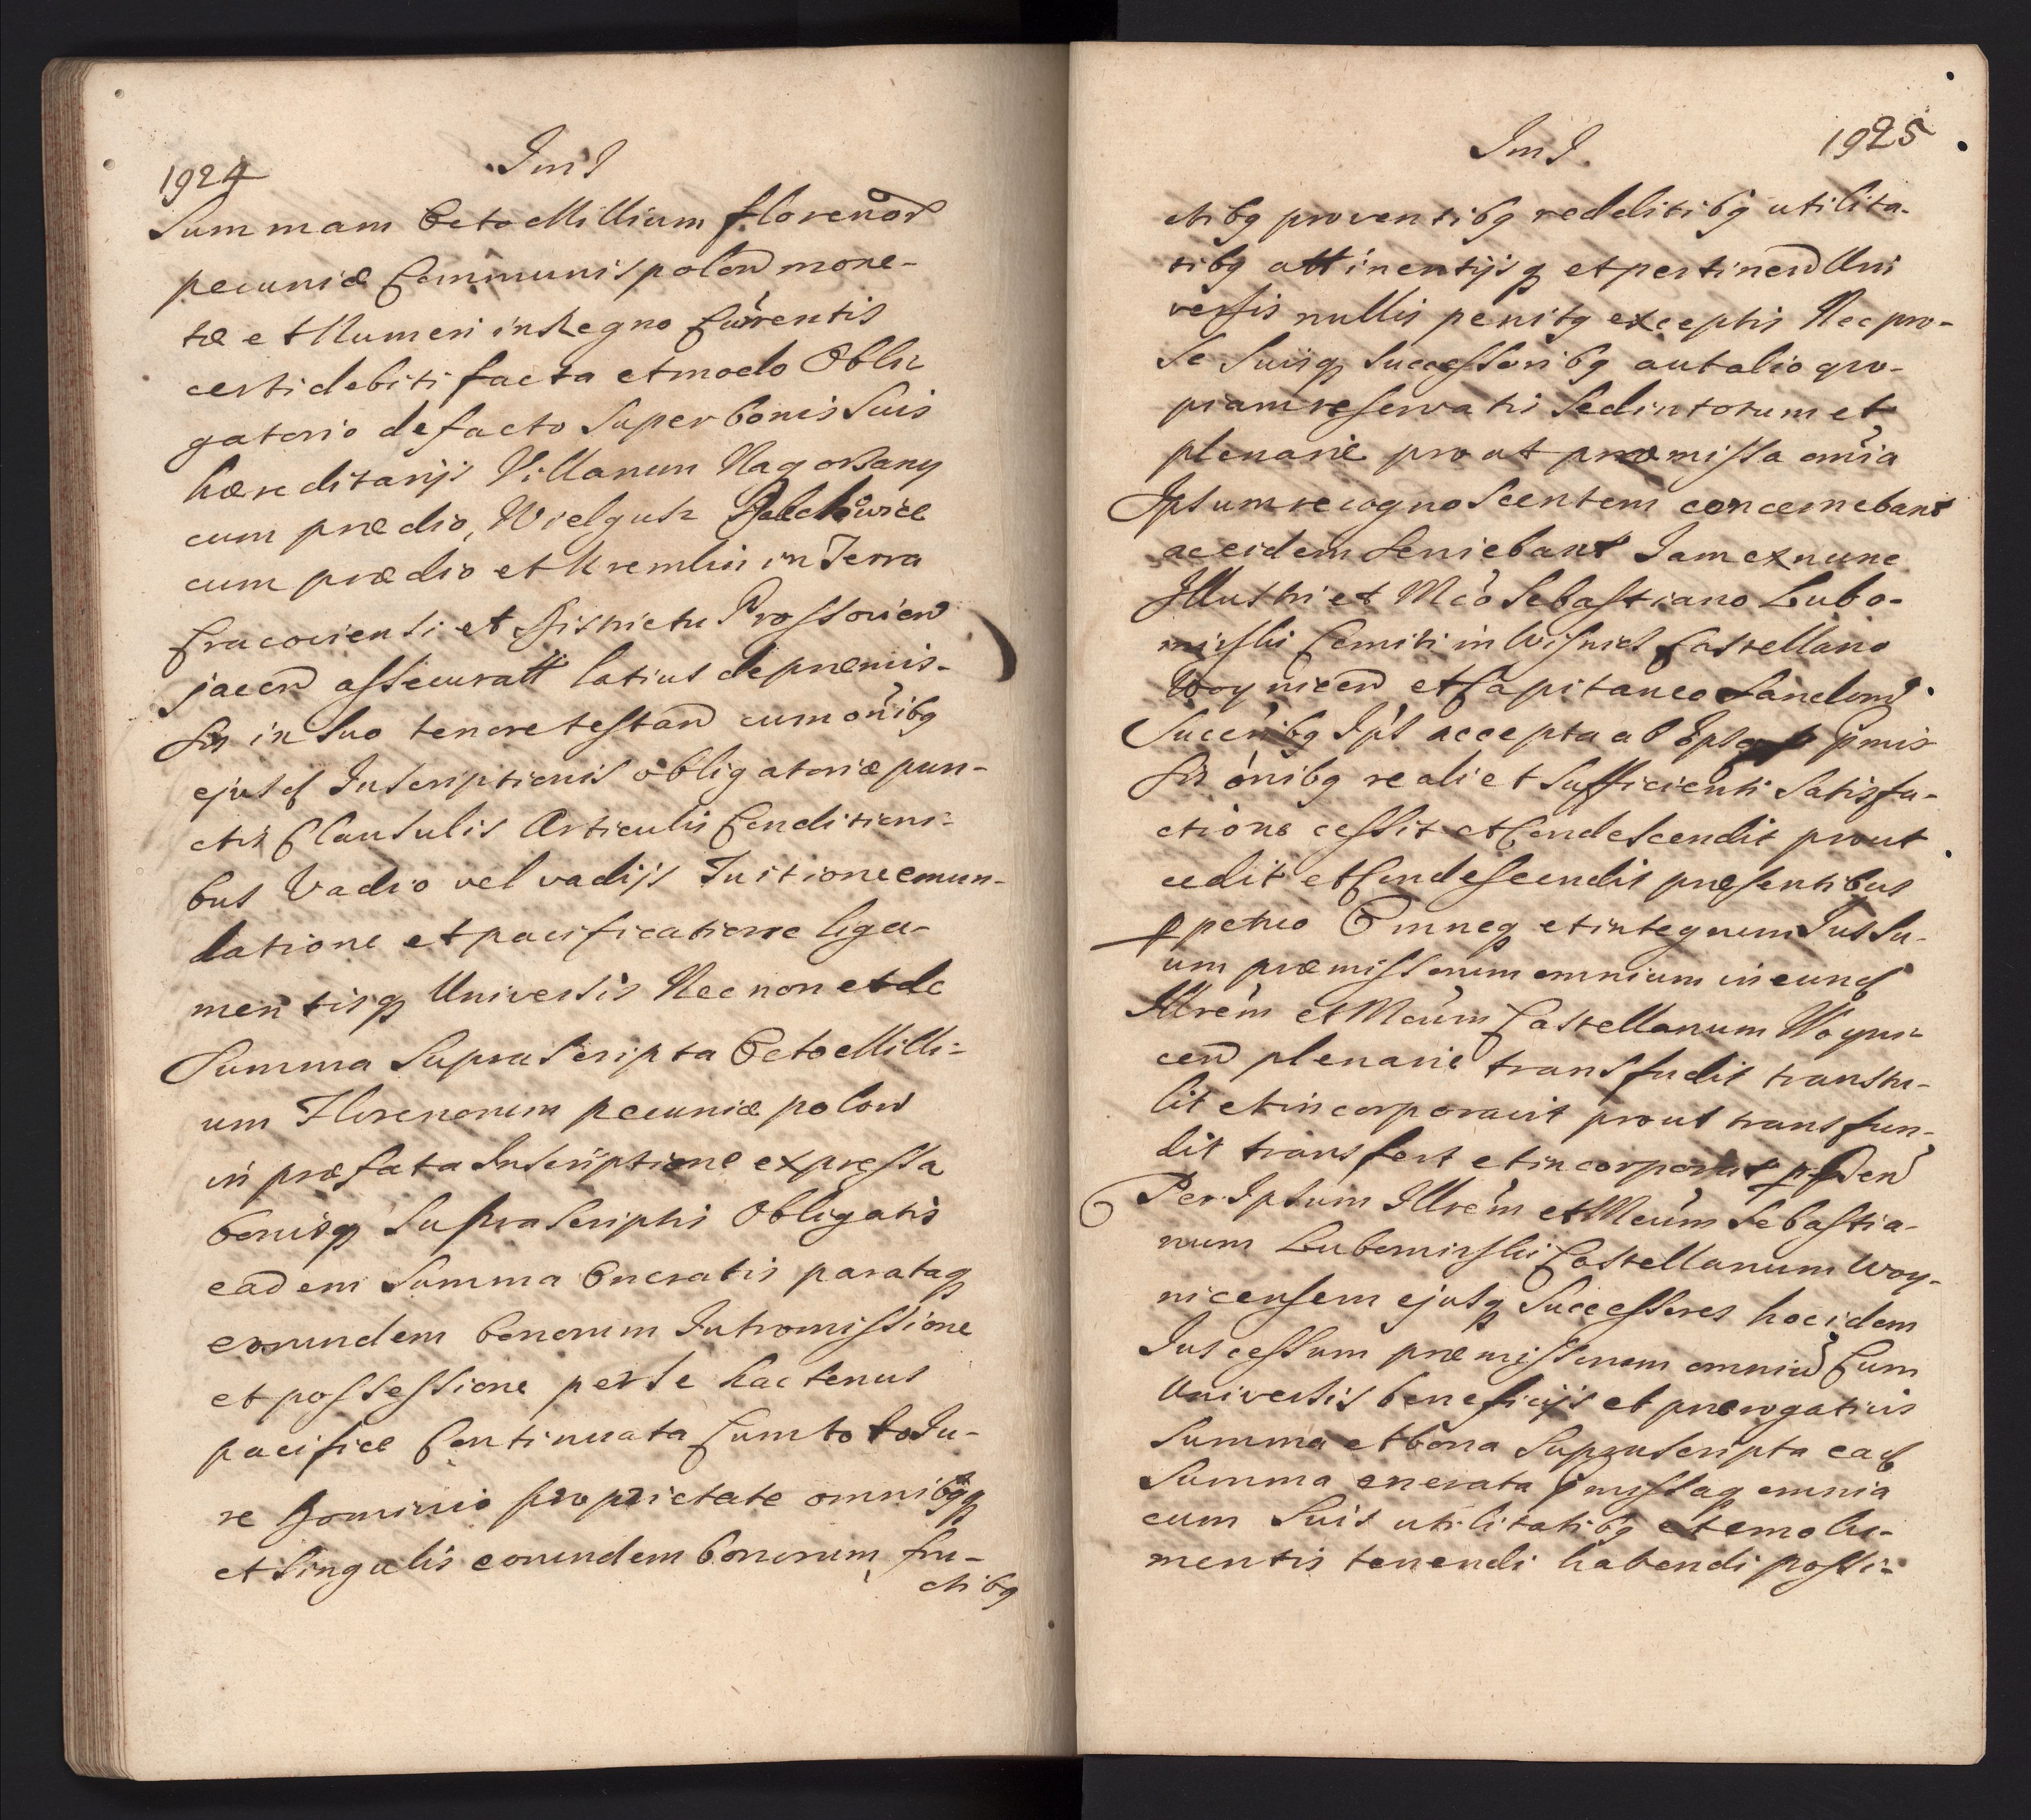 1924 Im I
Summam Octo Millium florenor
pecuniæ Communis polon mone-
tæ et Numeri in Regno Currentis
certi debiti facta et modo Obli
gatorio de facto Super bonis Suis
hæreditarijs Villarum Nagorzany
cum prædio, Wielgusz
cum prædio et Kremlin in Terra
Cracoviensi et Districtu Prossovien
jacen assecuratt latius de præmis-
sis in Suo tenore testan cum onibq
ejusd Inscriptionis obligatoriæ pun-
ctis Clausulis Articulis Conditioni-
bus Vadio vel vadijs Tuitione emun-
datione et pacificatione liga-
mentisq Universis Nec non et de
Summa Suprascripta Octo Milli-
um Florenorum pecuniæ polon
in præfata Inscriptione expressa
bonisq Suprascriptis Obligatis
eadem Summa Oneratis parataq
eorundem bonorum Intromissione
et possessione per Se hactenus
pacifice Continuata Cum toto Ju-
re Dominio proprietate omnibqq
et Singulis eorundem bonorum fru-
ctibq
Im I. 1925
ctibq proventibq redditibq utilita-
tibq attinentijsq et pertinen Uni
versis nullis penitq exceptis Nec pro-
Se Suisq Successoribq aut alio quo-
piam reservatis Sed in totum et
plenarie prout præmissa omia
Ipsum recognoscentem concernebant
ac eidem Serviebant Jam ex nunc
Illustri et Mco Sebastiano Lubo-
mirski Comiti in Wisnicz Castellano
Woynicen et Capitaneo Sandom
Succribq Ips accepta ab Ipso pmis
sis onibq reali et Sufficienti Satisfa-
ctione cessit et Condescendit prout
cedit et Condescendit præsentibus
ppetuo Omneq et integrum Jus Su-
um præmissorum omnium in eund
Illrem et Mcum Castellanum Woyni-
cen plenarie transfudit transtu-
lit et incorporavit prout transfun-
dit transfert et incorporat pssen
Per Ipsum Illrem et Mcum Sebastia-
num Lubomirski Castellanum Woy-
nicensem ejusq Successores hoc idem
Jus cessum præmissorum omniu Cum
Universis beneficijs et prærogativis
Summa et bona Suprascripta ead
Summa onerata pmissaq omnia
cum Suis utilitatibq et emolu-
mentis tenendi habendi possi-